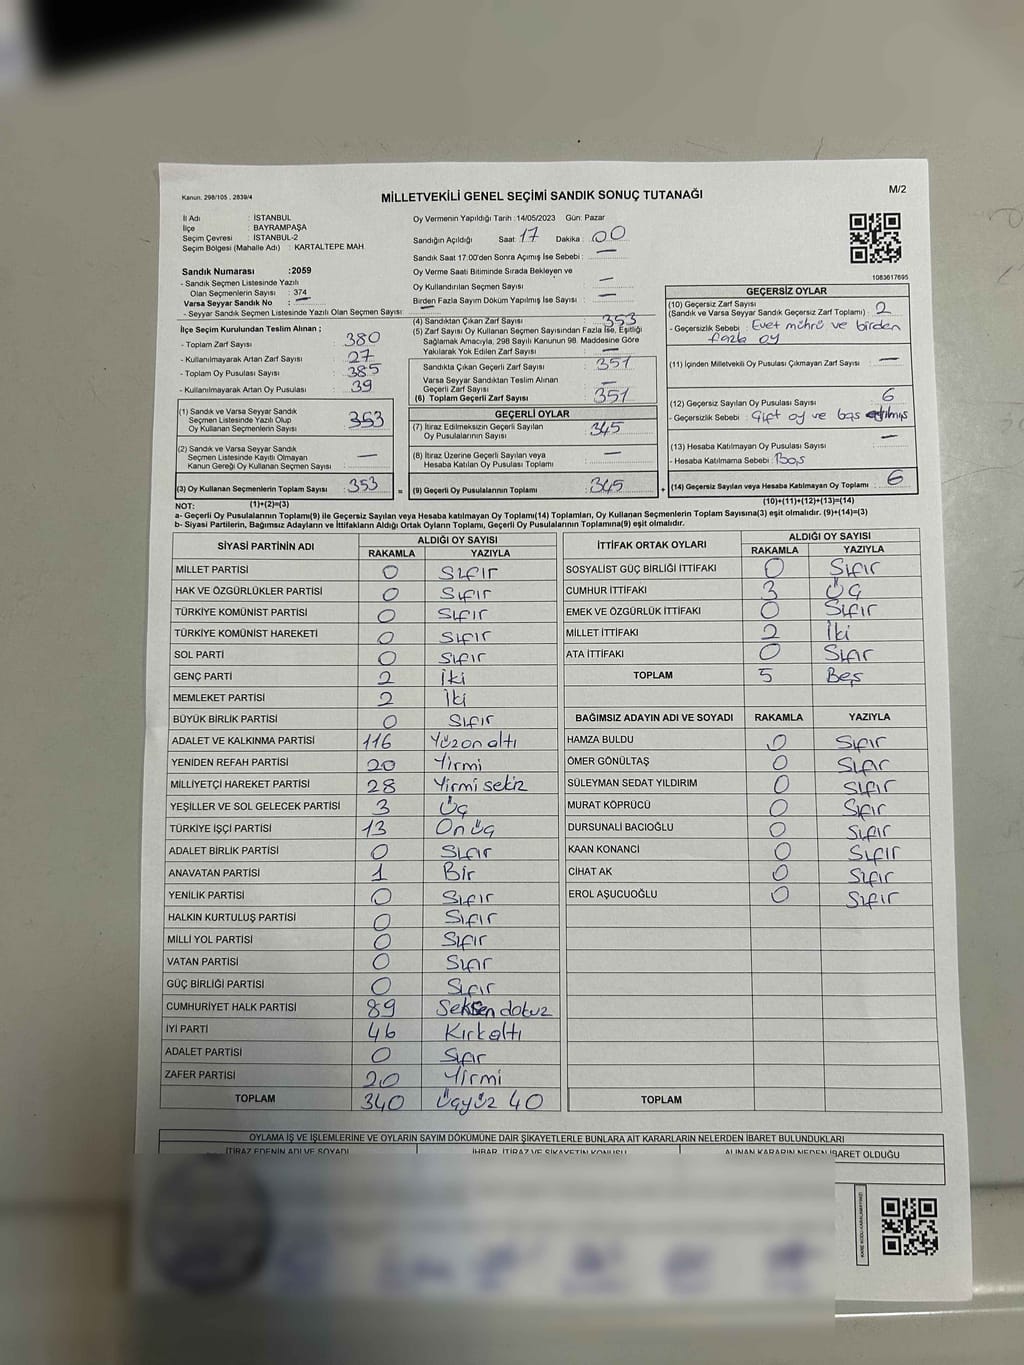 Kanun: 298/105 , 2839/4
MİLLETVEKİLİ GENEL SEÇİMİ SANDIK SONUÇ TUTANAĞI
M/2
İl Adı : İSTANBUL
İlçe : BAYRAMPAŞA
Seçim Çevresi : İSTANBUL-2
Seçim Bölgesi (Mahalle Adı) : KARTALTEPE MAH
Sandık Numarası :2059
- Sandık Seçmen Listesinde Yazılı
Olan Seçmenlerin Sayısı : 374
Varsa Seyyar Sandık No : —
- Seyyar Sandık Seçmen Listesinde Yazılı Olan Seçmen Sayısı :
Oy Vermenin Yapıldığı Tarih :14/05/2023 Gün: Pazar
Sandığın Açıldığı Saat: 17 Dakika : 00
Sandık Saat 17:00'den Sonra Açılmış İse Sebebi : —
Oy Verme Saati Bitiminde Sırada Bekleyen ve
Oy Kullandırılan Seçmen Sayısı —
Birden Fazla Sayım Döküm Yapılmış İse Sayısı : —
1083617695
İlçe Seçim Kurulundan Teslim Alınan ;
- Toplam Zarf Sayısı : 380
- Kullanılmayarak Artan Zarf Sayısı : 27
- Toplam Oy Pusulası Sayısı : 385
- Kullanılmayarak Artan Oy Pusulası : 39
(1) Sandık ve Varsa Seyyar Sandık
Seçmen Listesinde Yazılı Olup
Oy Kullanan Seçmenlerin Sayısı : 353
(2) Sandık ve Varsa Seyyar Sandık
Seçmen Listesinde Kayıtlı Olmayan
Kanun Gereği Oy Kullanan Seçmen Sayısı : —
(3) Oy Kullanan Seçmenlerin Toplam Sayısı : 353
(1)+(2)=(3)
(4) Sandıktan Çıkan Zarf Sayısı : 353
(5) Zarf Sayısı Oy Kullanan Seçmen Sayısından Fazla İse, Eşitliği
Sağlamak Amacıyla, 298 Sayılı Kanunun 98. Maddesine Göre
Yakılarak Yok Edilen Zarf Sayısı : —
Sandıkta Çıkan Geçerli Zarf Sayısı : 351
Varsa Seyyar Sandıktan Teslim Alınan
Geçerli Zarf Sayısı : —
(6) Toplam Geçerli Zarf Sayısı : 351
GEÇERLİ OYLAR
(7) İtiraz Edilmeksizin Geçerli Sayılan
Oy Pusulalarının Sayısı : 345
(8) İtiraz Üzerine Geçerli Sayılan veya
Hesaba Katılan Oy Pusulası Toplamı : —
= (9) Geçerli Oy Pusulalarının Toplamı : 345
GEÇERSİZ OYLAR
(10) Geçersiz Zarf Sayısı
(Sandık ve Varsa Seyyar Sandık Geçersiz Zarf Toplamı) : 2
- Geçersizlik Sebebi : Evet mührü ve birden
fazla oy
(11) İçinden Milletvekili Oy Pusulası Çıkmayan Zarf Sayısı : —
(12) Geçersiz Sayılan Oy Pusulası Sayısı : 6
- Geçersizlik Sebebi : Çift oy ve boş
(13) Hesaba Katılmayan Oy Pusulası Sayısı : —
- Hesaba Katılmama Sebebi : Boş
+ (14) Geçersiz Sayılan veya Hesaba Katılmayan Oy Toplamı : 6
(10)+(11)+(12)+(13)=(14)
NOT:
a- Geçerli Oy Pusulalarının Toplamı(9) ile Geçersiz Sayılan veya Hesaba Katılmayan Oy Toplamı(14) Toplamları, Oy Kullanan Seçmenlerin Toplam Sayısına(3) eşit olmalıdır. (9)+(14)=(3)
b- Siyasi Partilerin, Bağımsız Adayların ve İttifakların Aldığı Ortak Oyların Toplamı, Geçerli Oy Pusulalarının Toplamına(9) eşit olmalıdır.
SİYASİ PARTİNİN ADI ALDIĞI OY SAYISI
RAKAMLA YAZIYLA
MİLLET PARTİSİ 0 Sıfır
HAK VE ÖZGÜRLÜKLER PARTİSİ 0 Sıfır
TÜRKİYE KOMÜNİST PARTİSİ 0 Sıfır
TÜRKİYE KOMÜNİST HAREKETİ 0 Sıfır
SOL PARTİ 0 Sıfır
GENÇ PARTİ 2 İki
MEMLEKET PARTİSİ 2 İki
BÜYÜK BİRLİK PARTİSİ 0 Sıfır
ADALET VE KALKINMA PARTİSİ 116 Yüzonaltı
YENİDEN REFAH PARTİSİ 20 Yirmi
MİLLİYETÇİ HAREKET PARTİSİ 28 Yirmi sekiz
YEŞİLLER VE SOL GELECEK PARTİSİ 3 Üç
TÜRKİYE İŞÇİ PARTİSİ 13 On üç
ADALET BİRLİK PARTİSİ 0 Sıfır
ANAVATAN PARTİSİ 1 Bir
YENİLİK PARTİSİ 0 Sıfır
HALKIN KURTULUŞ PARTİSİ 0 Sıfır
MİLLİ YOL PARTİSİ 0 Sıfır
VATAN PARTİSİ 0 Sıfır
GÜÇ BİRLİĞİ PARTİSİ 0 Sıfır
CUMHURİYET HALK PARTİSİ 89 Seksen dokuz
İYİ PARTİ 46 Kırkaltı
ADALET PARTİSİ 0 Sıfır
ZAFER PARTİSİ 20 Yirmi
TOPLAM 340 Üçyüz 40
İTTİFAK ORTAK OYLARI ALDIĞI OY SAYISI
RAKAMLA YAZIYLA
SOSYALİST GÜÇ BİRLİĞİ İTTİFAKI 0 Sıfır
CUMHUR İTTİFAKI 3 Üç
EMEK VE ÖZGÜRLÜK İTTİFAKI 0 Sıfır
MİLLET İTTİFAKI 2 İki
ATA İTTİFAKI 0 Sıfır
TOPLAM 5 Beş
BAĞIMSIZ ADAYIN ADI VE SOYADI RAKAMLA YAZIYLA
HAMZA BULDU 0 Sıfır
ÖMER GÖNÜLTAŞ 0 Sıfır
SÜLEYMAN SEDAT YILDIRIM 0 Sıfır
MURAT KÖPRÜCÜ 0 Sıfır
DURSUNALİ BACIOĞLU 0 Sıfır
KAAN KONANCİ 0 Sıfır
CİHAT AK 0 Sıfır
EROL AŞUCUOĞLU 0 Sıfır
TOPLAM
OYLAMA İŞ VE İŞLEMLERİNE VE OYLARIN SAYIM DÖKÜMÜNE DAİR ŞİKAYETLERLE BUNLARA AİT KARARLARIN NELERDEN İBARET BULUNDUKLARI
İTİRAZ EDENİN ADI VE SOYADI İHBAR, İTİRAZ VE ŞİKAYETİN KONUSU ALINAN KARARIN NEDEN İBARET OLDUĞU